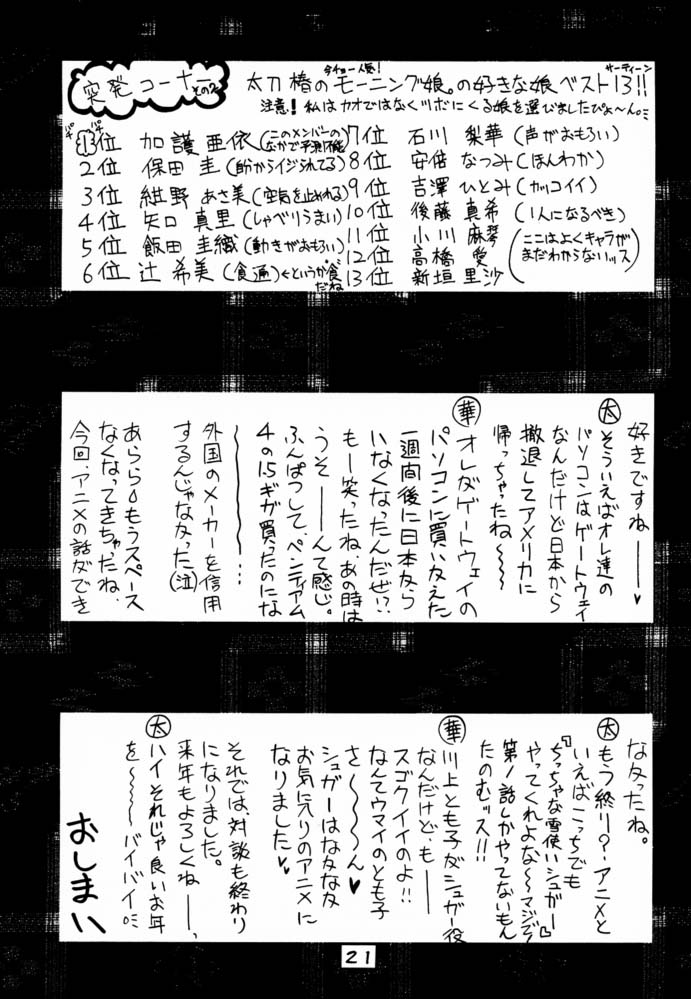 突発コーナー その2
今チョー人気!
太刀椿のモーニング娘。の好きな娘ベスト13!!
サーティーン
注意! 私はカオではなくツボにくる娘を選びましたぴょ〜ん。
1位 加護 亜依(このメンバーのなかで予測不能)
2位 保田 圭(皆からイジられてる)
3位 紺野 あさ美(空気を止めれる)
4位 矢口 真里(しゃべりうまい)
5位 飯田 圭織(動きがおもろい)
6位 辻 希美(食遍)←というか食だね
7位 石川 梨華(声がおもろい)
8位 安倍 なつみ(ほんわか)
9位 吉澤 ひとみ(カッコイイ)
10位 後藤 真希(1人になるべき)
11位 小川 麻琴
12位 高橋 愛
13位 新垣 里沙
(ここはよくキャラがまだわからないッス)
好きですねー
太 そういえばオレ達の
パソコンはゲートウェイ
なんだけど日本から
撤退してアメリカに
帰っちゃったね〜〜
華 オレがゲートウェイの
パソコンに買い変えた
一週間後に日本から
いなくなったんだぜ!?
もー笑ったね、あの時は
うそーーんて感じ。
ふんぱつして、ペンティアム
4の1.5ギガ買ったのにな
〜〜〜…
外国のメーカーを信用
するんじゃなかった(泣)
あらら もうスペース
なくなってきちゃったね、
今回、アニメの話ができ
なかったね。
太 もう終り?アニメと
いえばこっちでも
『ちっちゃな雪使いシュガー』
やってくれよな〜マジで
第1話しかやってないもん
たのむッス!!
華 川上とも子がシュガー役
なんだけど、もー
スゴクイイのよ!!
なんてウマイのとも子
さ〜〜〜ん♥
シュガーはなかなか
お気に入りのアニメに
なりました♥♥
それでは、対談も終わり
になりました。
来年もよろしくねー、
太 ハイそれじゃ良いお年
を〜〜〜バイバイ
おしまい
21